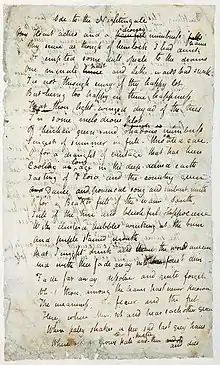 Ode to the Nightingale
Heart aches and a drowsy numbness
My sense as though of hemlock I had drunk
emptied some dull opiate to the drains
One minute since and Lethe wards had sunk
Tis not through envy of thy happy lot
But being too happy in thine happiness
That thou light winged dryad of the trees
In some melodious plot
Of beechen green and numberless
Singest of summer in
O for a draught of vintage that has been
Cooling an age in the deep delved earth
Tasting of Flora and the country green
And Dance, and song and sunburnt mirth
O for a Beaker full of the warm South
Full of the true and blushful Hippocrene
With bubbles winking at the brim
And purple stained mouth
That I might drink and leave the world unseen
And with thee fade away
Fade far away dissolve and quite forget
What thou among the leaves hast never known
The weariness the fever and the fret
Here where men sit and hear each other groan
Where palsy shakes a few sad last grey hairs
Where grows pale and thin and dies